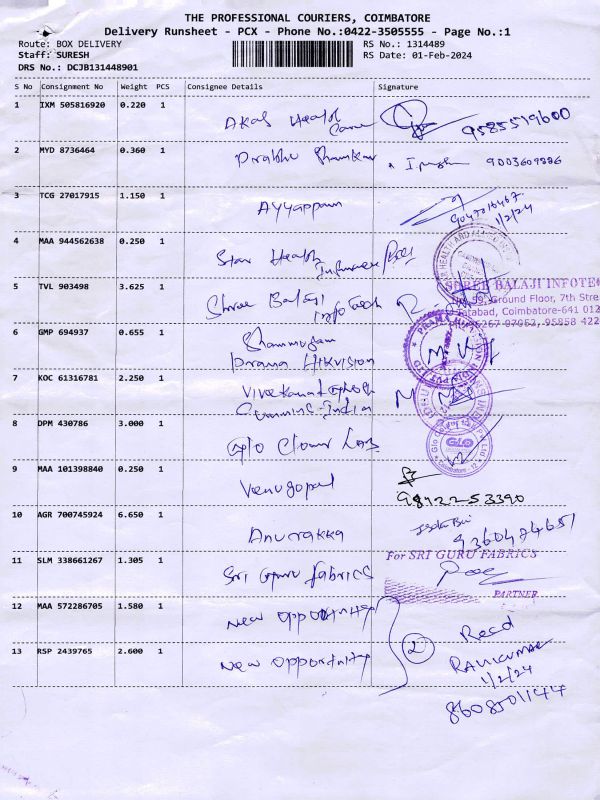 THE PROFESSIONAL COURIERS, COIMBATORE
Delivery Runsheet - PCX - Phone No.:0422-3505555 - Page No.:1
Route: BOX DELIVERY RS No.: 1314489
Staff: SURESH RS Date: 01-Feb-2024
DRS No.: DCJB131448901
S No Consignment No Weight PCS Consignee Details Signature
1 IXM 505816920 0.220 1 Akas Health Care 9585579600
2 MYD 8736464 0.360 1 Prabhu Shankar 9003609886
3 TCG 27017915 1.150 1 Ayyappan
1/2/24
4 MAA 944562638 0.250 1 Star Health Insurance
5 TVL 903498 3.625 1 Shree Balaji Infotech
SHREE BALAJI INFOTE
No. 59, Ground Floor, 7th Stre
Tatabad, Coimbatore-641 012
95858 422
6 GMP 694937 0.655 1 Shanmugam
Prama Hikvision
PRAMA HIKVISION INDIA PVT LTD
7 KOC 61316781 2.250 1 Vivekanand
Cummins-India
8 DPM 430786 3.000 1 Glo Clour Labs
GLO
Coimbatore - 12
9 MAA 101398840 0.250 1 Venugopal
98422-53390
10 AGR 700745924 6.650 1 Anurakka
9360474651
11 SLM 338661267 1.305 1 Sri Guru Fabrics
For SRI GURU FABRICS
PARTNER
12 MAA 572286705 1.580 1 New Opportunity
13 RSP 2439765 2.600 1 New Opportunity
2
Recd
RAVIKUMAR
1/2/24
8608501144